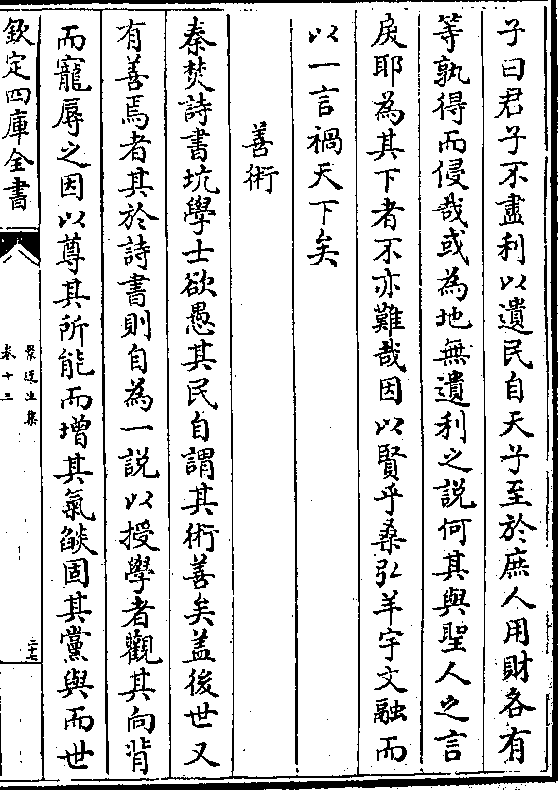 子曰君子不盡利以遺民自天子至於庶人用財各有
等孰得而侵哉或為地無遺利之説何其與聖人之言
戾耶為其下者不亦難哉因以賢乎桑弘羊宇文融而
以一言禍天下矣
善術
秦焚詩書坑學士欲愚其民自謂其術善矣盖後世又
有善焉者其於詩書則自為一説以授學者觀其向背
而寵辱之因以尊其所能而增其氣燄固其黨與而世
欽定四庫全書
景迂生集
卷十三
二十七